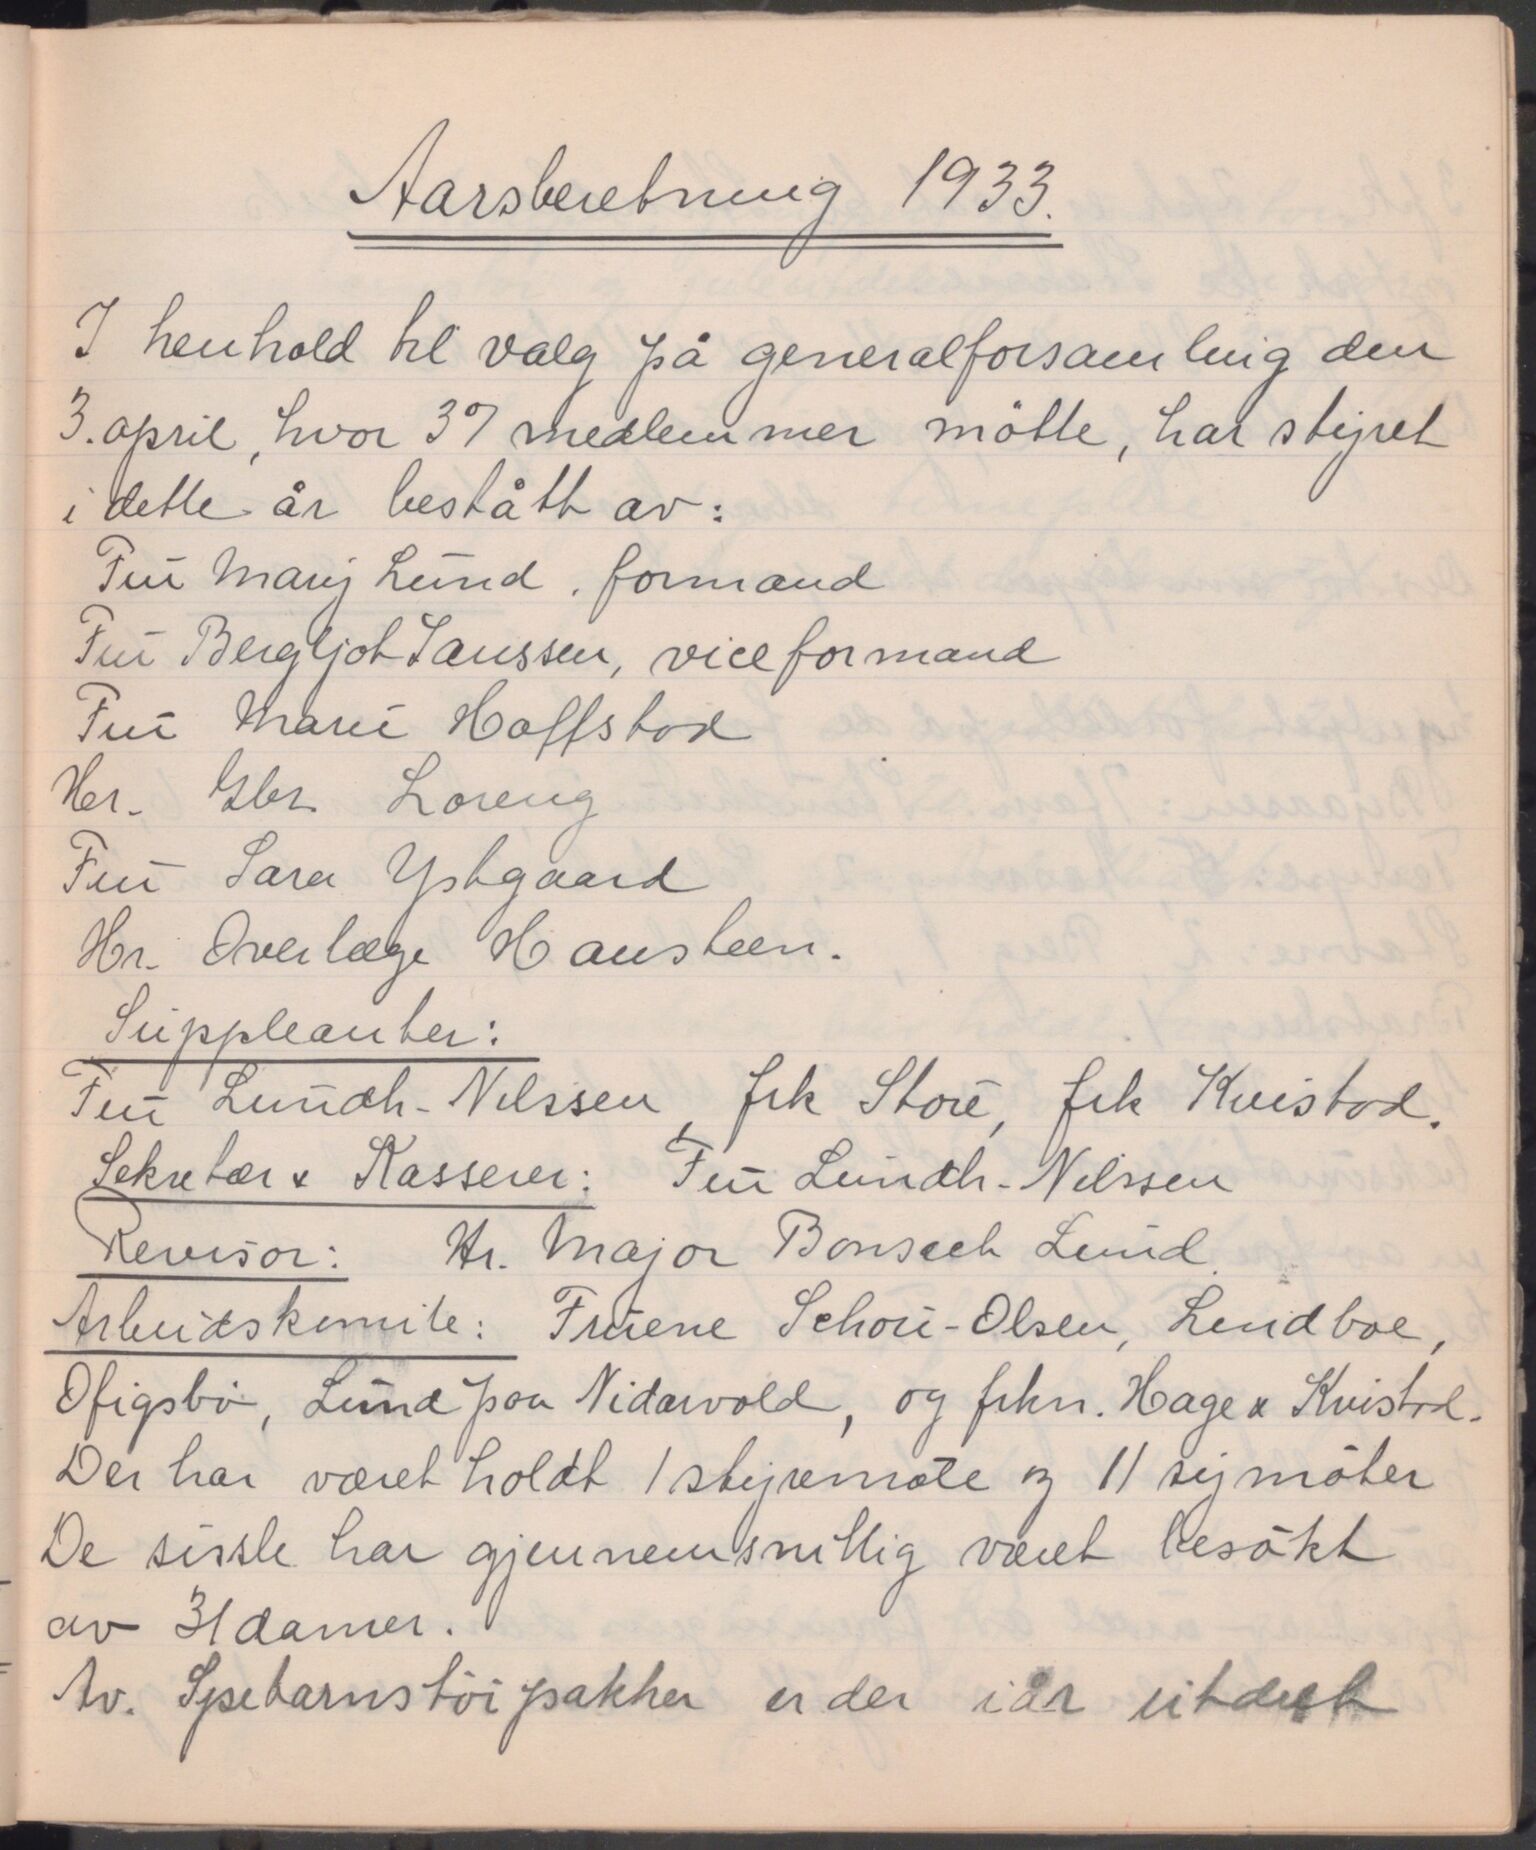 Aarsberetning 1933.
I henhold til valg på generalforsamling den
3. april, hvor 37 medlemmer møtte, har styret
i dette år bestått av:
Fru Mary Lund, formand
Fru Bergljot Janssen, viceformand
Fru Marie Hoffstad
Hr. Gbr. Loreng
Fru Sara Ystgaard
Hr. Overlæge Hansteen.
Suppleanter:
Fru Lundh-Nilssen, frk Store, frk Kvistad.
Sekretær & Kasserer: Fru Lundh-Nilssen
Revisor: Hr. Major Bonsach Lund.
Arbeidskomite: Fruene Schou-Olsen, Lundboe,
Ofigsbø, Lund paa Nidarvold, og frkn. Hage & Kvistad.
Der har været holdt 1 styremøte og 11 symøter
De sisste har gjennemsnittlig været besøkt
av 31 damer.
Av. Spebarnstøipakker er der iår utdelt